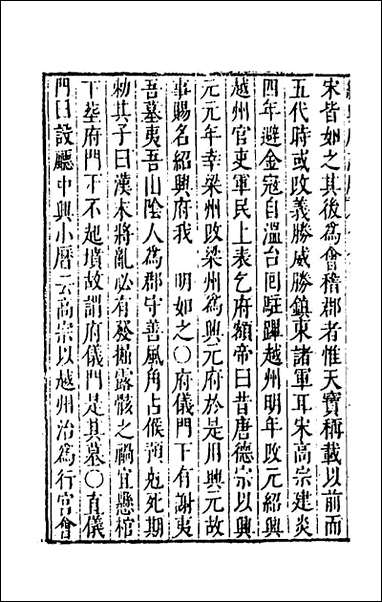 宋皆如之其後為會稽郡者惟天寶稱載以前而
五代時或改義勝威勝鎮東諸軍耳宋高宗建炎
四年避金寇自溫台囘駐蹕越州明年改元紹興
越州官吏軍民上表乞府額帝曰昔唐德宗以興
元元年幸梁州改梁州為興元府於是用興元故
事賜名紹興府我　明如之○府儀門下有謝夷
吾墓夷吾山陰人為郡守善風角占候預尅死期
勅其子曰漢末將亂必有發掘露骸之禍宜懸棺
下塟府門下不起墳故謂府儀門是其墓○直儀
門曰設廳中興小曆云高宗以越州治為行宮會